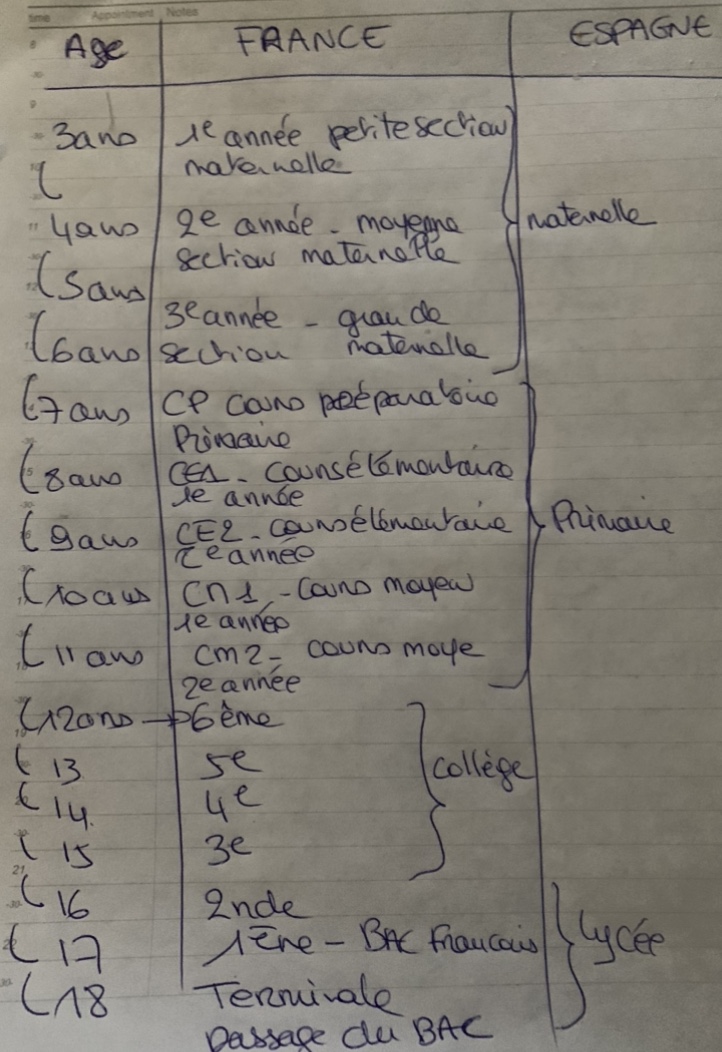 time Appointment Notes
Age FRANCE ESPAGNE
3ans 1e année petite section
maternelle
4ans 2e année - moyenne maternelle
section maternelle
5ans
3e année - grande
6ans section maternelle
7 ans CP cours préparatoire
Primaire
8ans CE1 - cours élémentaire
1e année
9ans CE2 - cours élémentaire Primaire
2e année
10 ans CM1 - cours moyen
1e année
11 ans CM2 - cours moye
2e année
12ans → 6ème
13 5e collège
14 4e
15 3e
21
16 2nde
17 1ère - BAC Francais Lycée
18 Terminale
passage du BAC